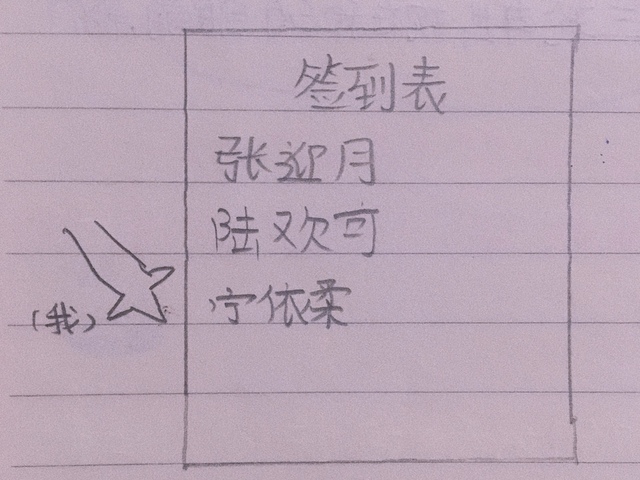 签到表
张迎月
陆欢可
宁依柔
(我)